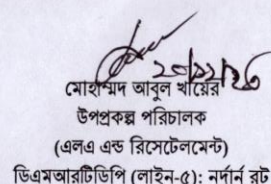 মোহাম্মদ আবুল খায়ের
উপপ্রকল্প পরিচালক
(এলএ এন্ড রিসেটেলমেন্ট)
ডিএমআরটিডিপি (লাইন-৫): নর্দার্ন রুট